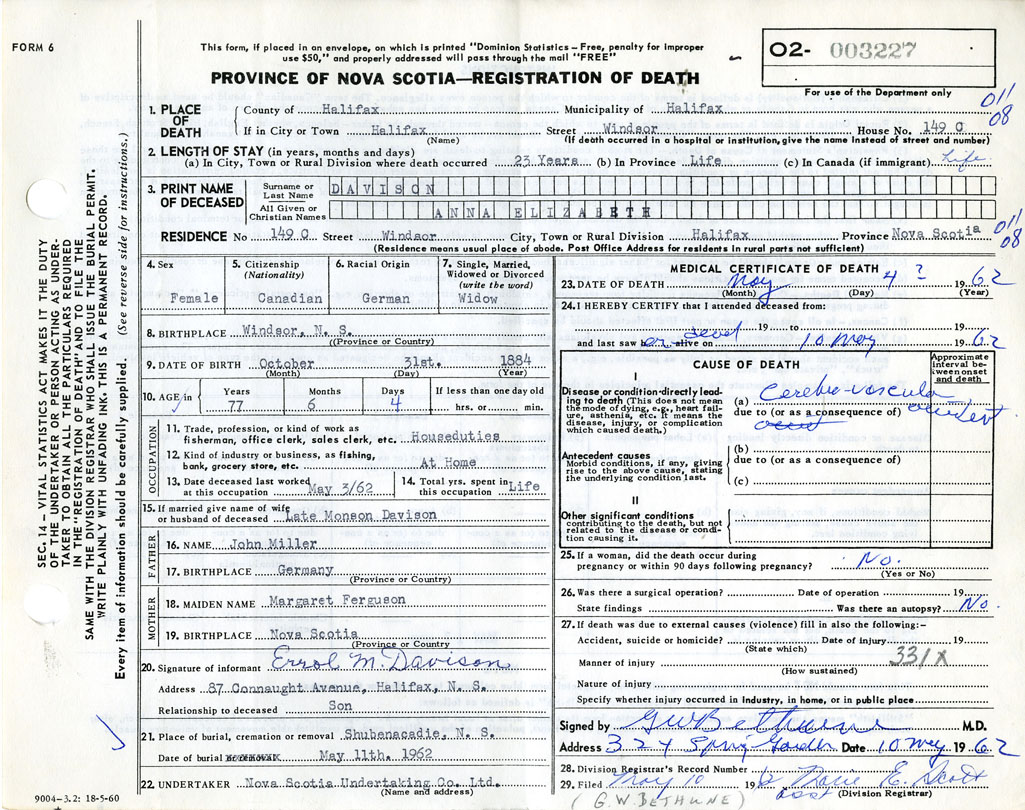 FORM 6
This form, if placed in an envelope, on which is printed "Dominion Statistics – Free, penalty for improper
use $50," and properly addressed will pass through the mail "FREE"
O2- 003227
PROVINCE OF NOVA SCOTIA—REGISTRATION OF DEATH
For use of the Department only
011
08
1. PLACE OF DEATH { County of Halifax Municipality of Halifax
If in City or Town Halifax Street Windsor House No. 149 C
(Name) (If death occurred in a hospital or institution, give the name instead of street and number)
2. LENGTH OF STAY (in years, months and days)
(a) In City, Town or Rural Division where death occurred 23 Years (b) In Province Life (c) In Canada (if immigrant) Life
3. PRINT NAME OF DECEASED
Surname or Last Name DAVISON
All Given or Christian Names ANNA ELIZABETH
RESIDENCE No 149 C Street Windsor City, Town or Rural Division Halifax Province Nova Scotia
011
08
(Residence means usual place of abode. Post Office Address for residents in rural parts not sufficient)
4. Sex
Female
5. Citizenship
(Nationality)
Canadian
6. Racial Origin
German
7. Single, Married,
Widowed or Divorced
(write the word)
Widow
8. BIRTHPLACE Windsor, N. S.
((Province or Country)
9. DATE OF BIRTH October 31st. 1884
(Month) (Day) (Year)
10. AGE in Years Months Days If less than one day old
77 6 4 hrs. or min.
OCCUPATION
11. Trade, profession, or kind of work as
fisherman, office clerk, sales clerk, etc. Houseduties
12. Kind of industry or business, as fishing,
bank, grocery store, etc. At Home
13. Date deceased last worked
at this occupation May 3/62
14. Total yrs. spent in
this occupation Life
15. If married give name of wife
or husband of deceased Late Monson Davison
FATHER
16. NAME John Miller
17. BIRTHPLACE Germany
(Province or Country)
MOTHER
18. MAIDEN NAME Margaret Ferguson
19. BIRTHPLACE Nova Scotia
(Province or Country
20. Signature of informant Errol M. Davison
Address 87 Connaught Avenue, Halifax, N. S.
Relationship to deceased Son
21. Place of burial, cremation or removal Shubenacadie, N. S.
Date of burial May 11th. 1962
22. UNDERTAKER Nova Scotia Undertaking Co. Ltd.
(Name and address)
MEDICAL CERTIFICATE OF DEATH
23. DATE OF DEATH May 4 ? 1962
(Month) (Day) (Year)
24. I HEREBY CERTIFY that I attended deceased from:
19 to 19
and last saw her alive on dead 10 May 1962
CAUSE OF DEATH
Approximate
interval between onset
and death
I
Disease or condition directly leading to death (This does not mean
the mode of dying, e.g., heart failure, asthenia, etc. It means the
disease, injury, or complication
which caused death.)
(a) Cerebro-vascular accident
due to (or as a consequence of)
Antecedent causes
Morbid conditions, if any, giving
rise to the above cause, stating
the underlying condition last.
(b)
due to (or as a consequence of)
(c)
II
Other significant conditions
contributing to the death, but not
related to the disease or condition causing it.
25. If a woman, did the death occur during
pregnancy or within 90 days following pregnancy? No.
(Yes or No)
26. Was there a surgical operation? Date of operation 19
State findings Was there an autopsy? No.
27. If death was due to external causes (violence) fill in also the following:–
Accident, suicide or homicide? Date of injury 19
(State which)
331X
Manner of injury
(How sustained)
Nature of injury
Specify whether injury occurred in industry, in home, or in public place
Signed by G W Bethune M.D.
Address 324 Spring Garden Date 10 May 1962
28. Division Registrar's Record Number
29. Filed May 10 196 Marie E. Scott
asst (Division Registrar)
(G.W. BETHUNE)
SEC. 14 — VITAL STATISTICS ACT MAKES IT THE DUTY
OF THE UNDERTAKER OR PERSON ACTING AS UNDERTAKER TO OBTAIN ALL THE PARTICULARS REQUIRED
IN THE "REGISTRATION OF DEATH" AND TO FILE THE
SAME WITH THE DIVISION REGISTRAR WHO SHALL ISSUE THE BURIAL PERMIT.
WRITE PLAINLY WITH UNFADING INK. THIS IS A PERMANENT RECORD.
Every item of information should be carefully supplied. (See reverse side for instructions.)
9004-3.2: 18-5-60